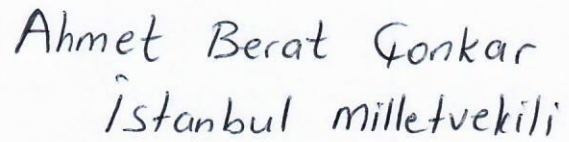 Ahmet Berat Çonkar
İstanbul milletvekili